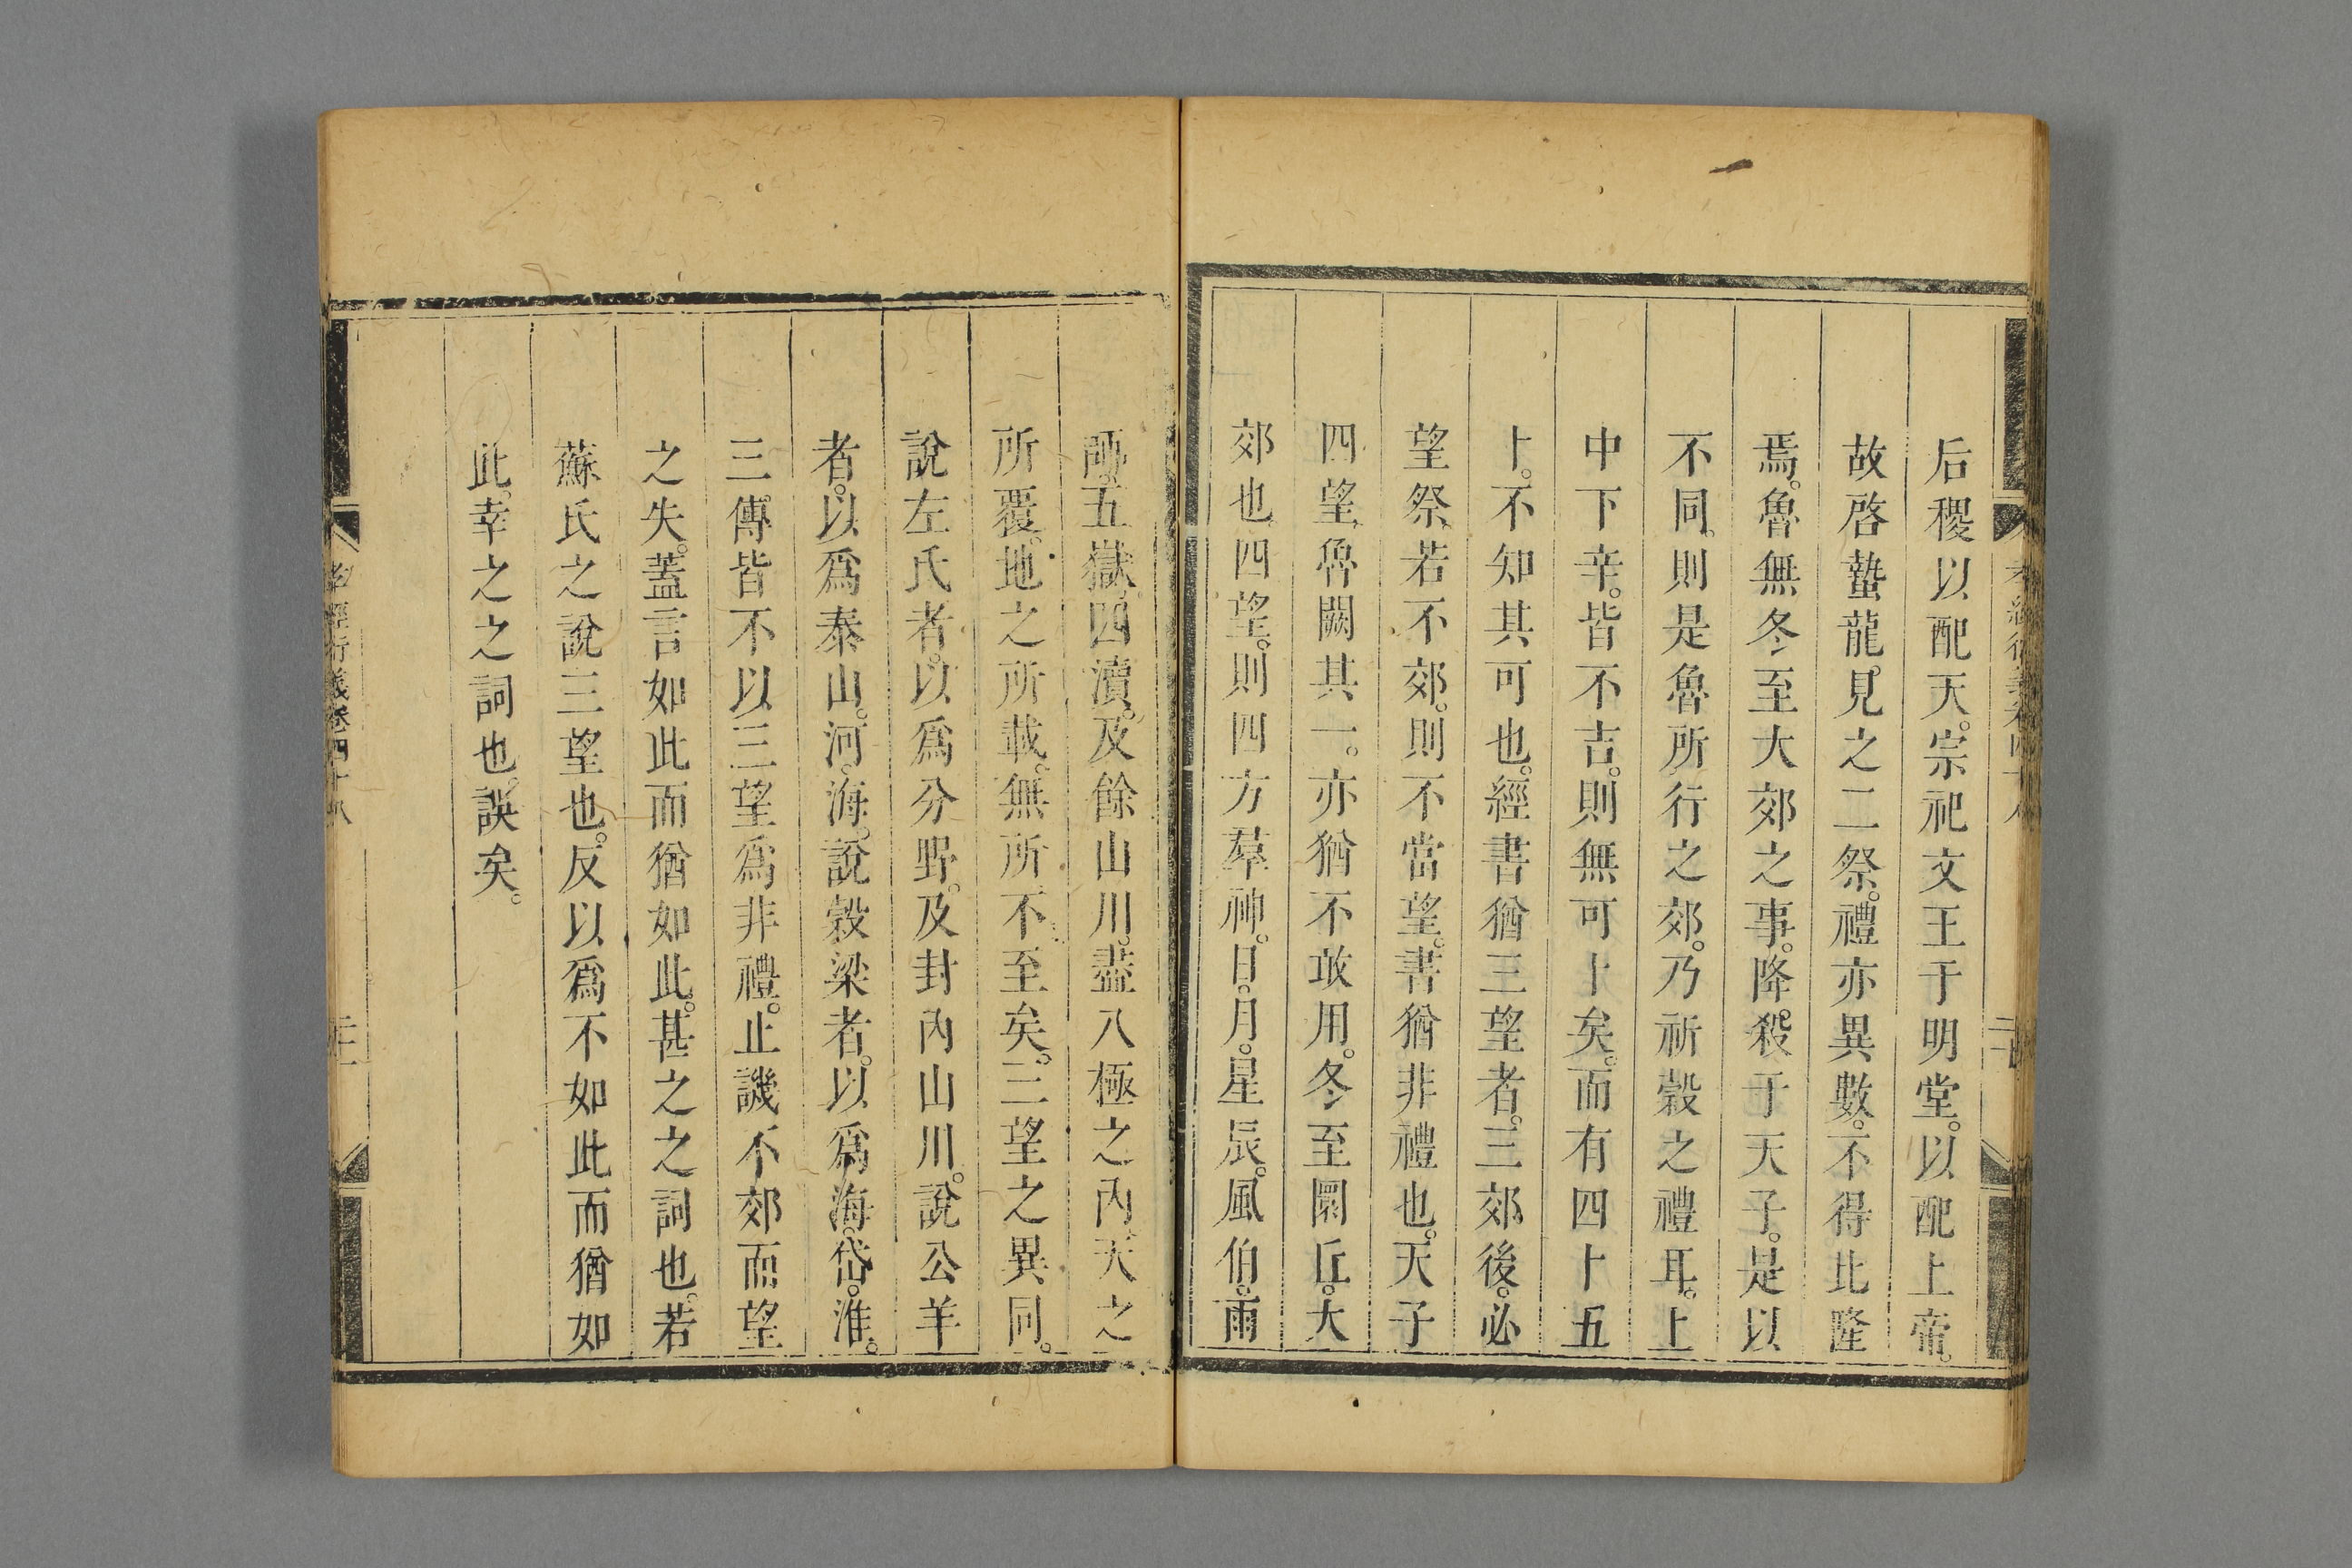 后稷以配天。宗祀文王于明堂。以配上帝。
故啓蟄龍見之二祭。禮亦異數。不得比隆
焉。魯無冬至大郊之事。降殺于天子。是以
不同。則是魯所行之郊。乃祈穀之禮耳。上
中下辛。皆不吉。則無可卜矣。而有四卜五
卜。不知其可也。經書猶三望者。三郊後。必
望祭。若不郊。則不當望。書猶非禮也。天子
四望。魯闕其一。亦猶不敢用。冬至圜丘。大
郊也。四望。則四方羣神。日。月。星辰。風伯。雨
師。五嶽。四瀆。及餘山川。盡八極之內。天之
所覆。地之所載。無所不至矣。三望之異同。
說左氏者。以爲分野。及封內山川。說公羊
者。以爲泰山。河。海。說穀梁者。以爲海。岱。淮。
三傳皆不以三望爲非禮。止譏不郊而望
之失。蓋言如此而猶如此。甚之之詞也。若
蘇氏之說三望也。反以爲不如此而猶如
此。幸之之詞也。誤矣。
孝經衍義卷四十八
二十一